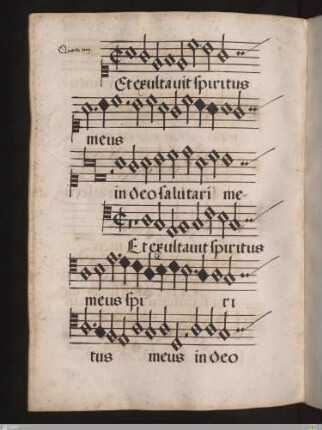 Et exultavit spiritus
meus
in deo salutari me-
Et exultavit spiritus
meus spi ri
tus meus in deo